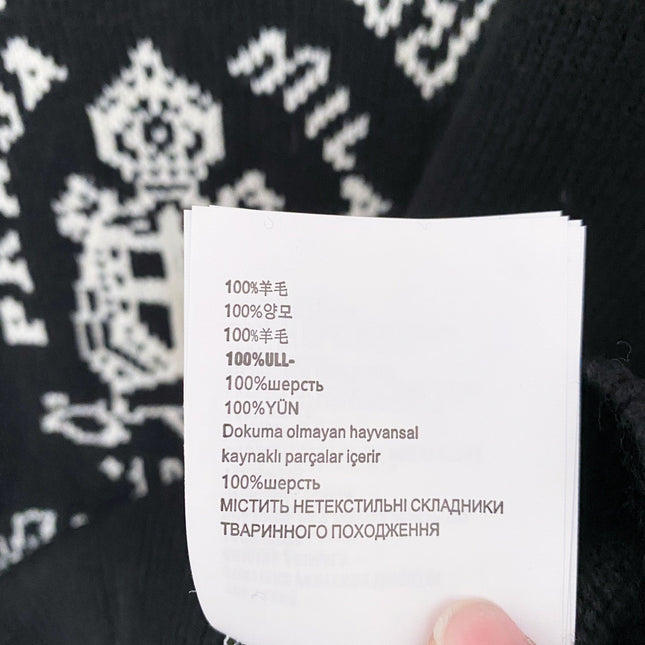 PRADA
MILA
100%羊毛
100%양모
100%羊毛
100%ULL-
100%шерсть
100%YÜN
Dokuma olmayan hayvansal
kaynaklı parçalar içerir
100%шерсть
МІСТИТЬ НЕТЕКСТИЛЬНІ СКЛАДНИКИ
ТВАРИННОГО ПОХОДЖЕННЯ